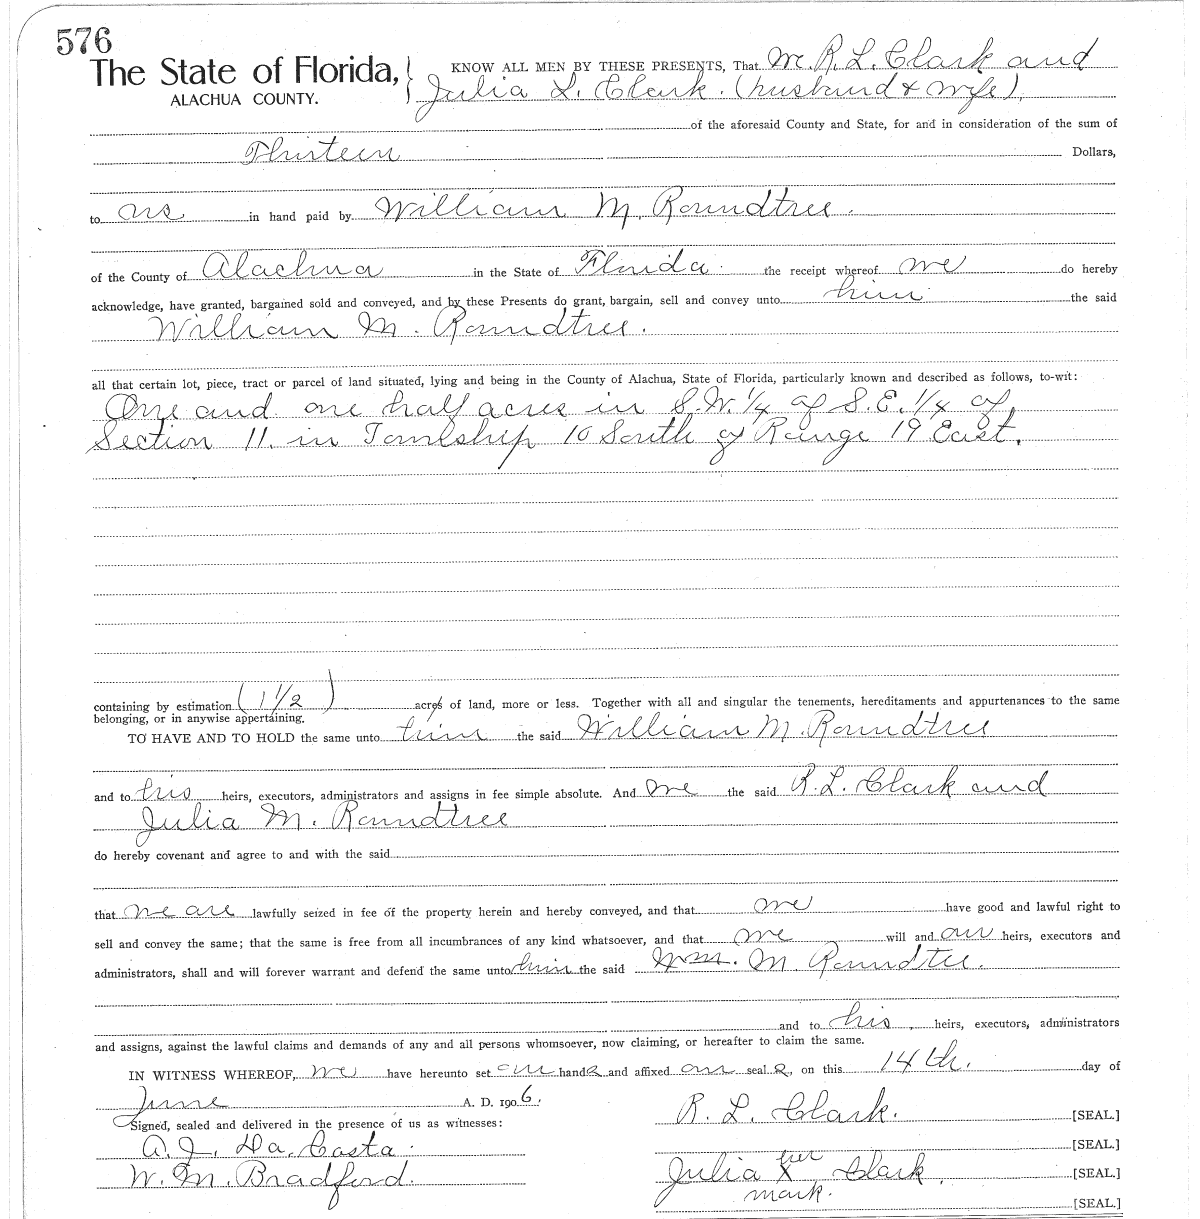 576
The State of Florida, } KNOW ALL MEN BY THESE PRESENTS, That we R. L. Clark and
ALACHUA COUNTY. Julia L. Clark. (husband & wife),
of the aforesaid County and State, for and in consideration of the sum of
Thirteen Dollars,
to us in hand paid by William M. Roundtree.
of the County of Alachua in the State of Florida. the receipt whereof we do hereby
acknowledge, have granted, bargained sold and conveyed, and by these Presents do grant, bargain, sell and convey unto him the said
William M. Roundtree.
all that certain lot, piece, tract or parcel of land situated, lying and being in the County of Alachua, State of Florida, particularly known and described as follows, to-wit:
One and one half acres in S.W. 1/4 of S.E. 1/4 of
Section 11. in Township 10 South of Range 19 East.
containing by estimation (1 1/2) acres of land, more or less. Together with all and singular the tenements, hereditaments and appurtenances to the same
belonging, or in anywise appertaining.
TO HAVE AND TO HOLD the same unto him the said William M. Roundtree
and to his heirs, executors, administrators and assigns in fee simple absolute. And we the said R. L. Clark and
Julia M. Roundtree
do hereby covenant and agree to and with the said
that we are lawfully seized in fee of the property herein and hereby conveyed, and that we have good and lawful right to
sell and convey the same; that the same is free from all incumbrances of any kind whatsoever, and that we will and our heirs, executors and
administrators, shall and will forever warrant and defend the same unto him the said Wm. M. Roundtee.
and to his heirs, executors, administrators
and assigns, against the lawful claims and demands of any and all persons whomsoever, now claiming, or hereafter to claim the same.
IN WITNESS WHEREOF, we have hereunto set our hands and affixed our seals, on this 14th. day of
June A. D. 1906.
Signed, sealed and delivered in the presence of us as witnesses: R. L. Clark. [SEAL.]
A. J. Da. Costa. [SEAL.]
W. M. Bradford. Julia her X mark. Clark. [SEAL.]
[SEAL.]